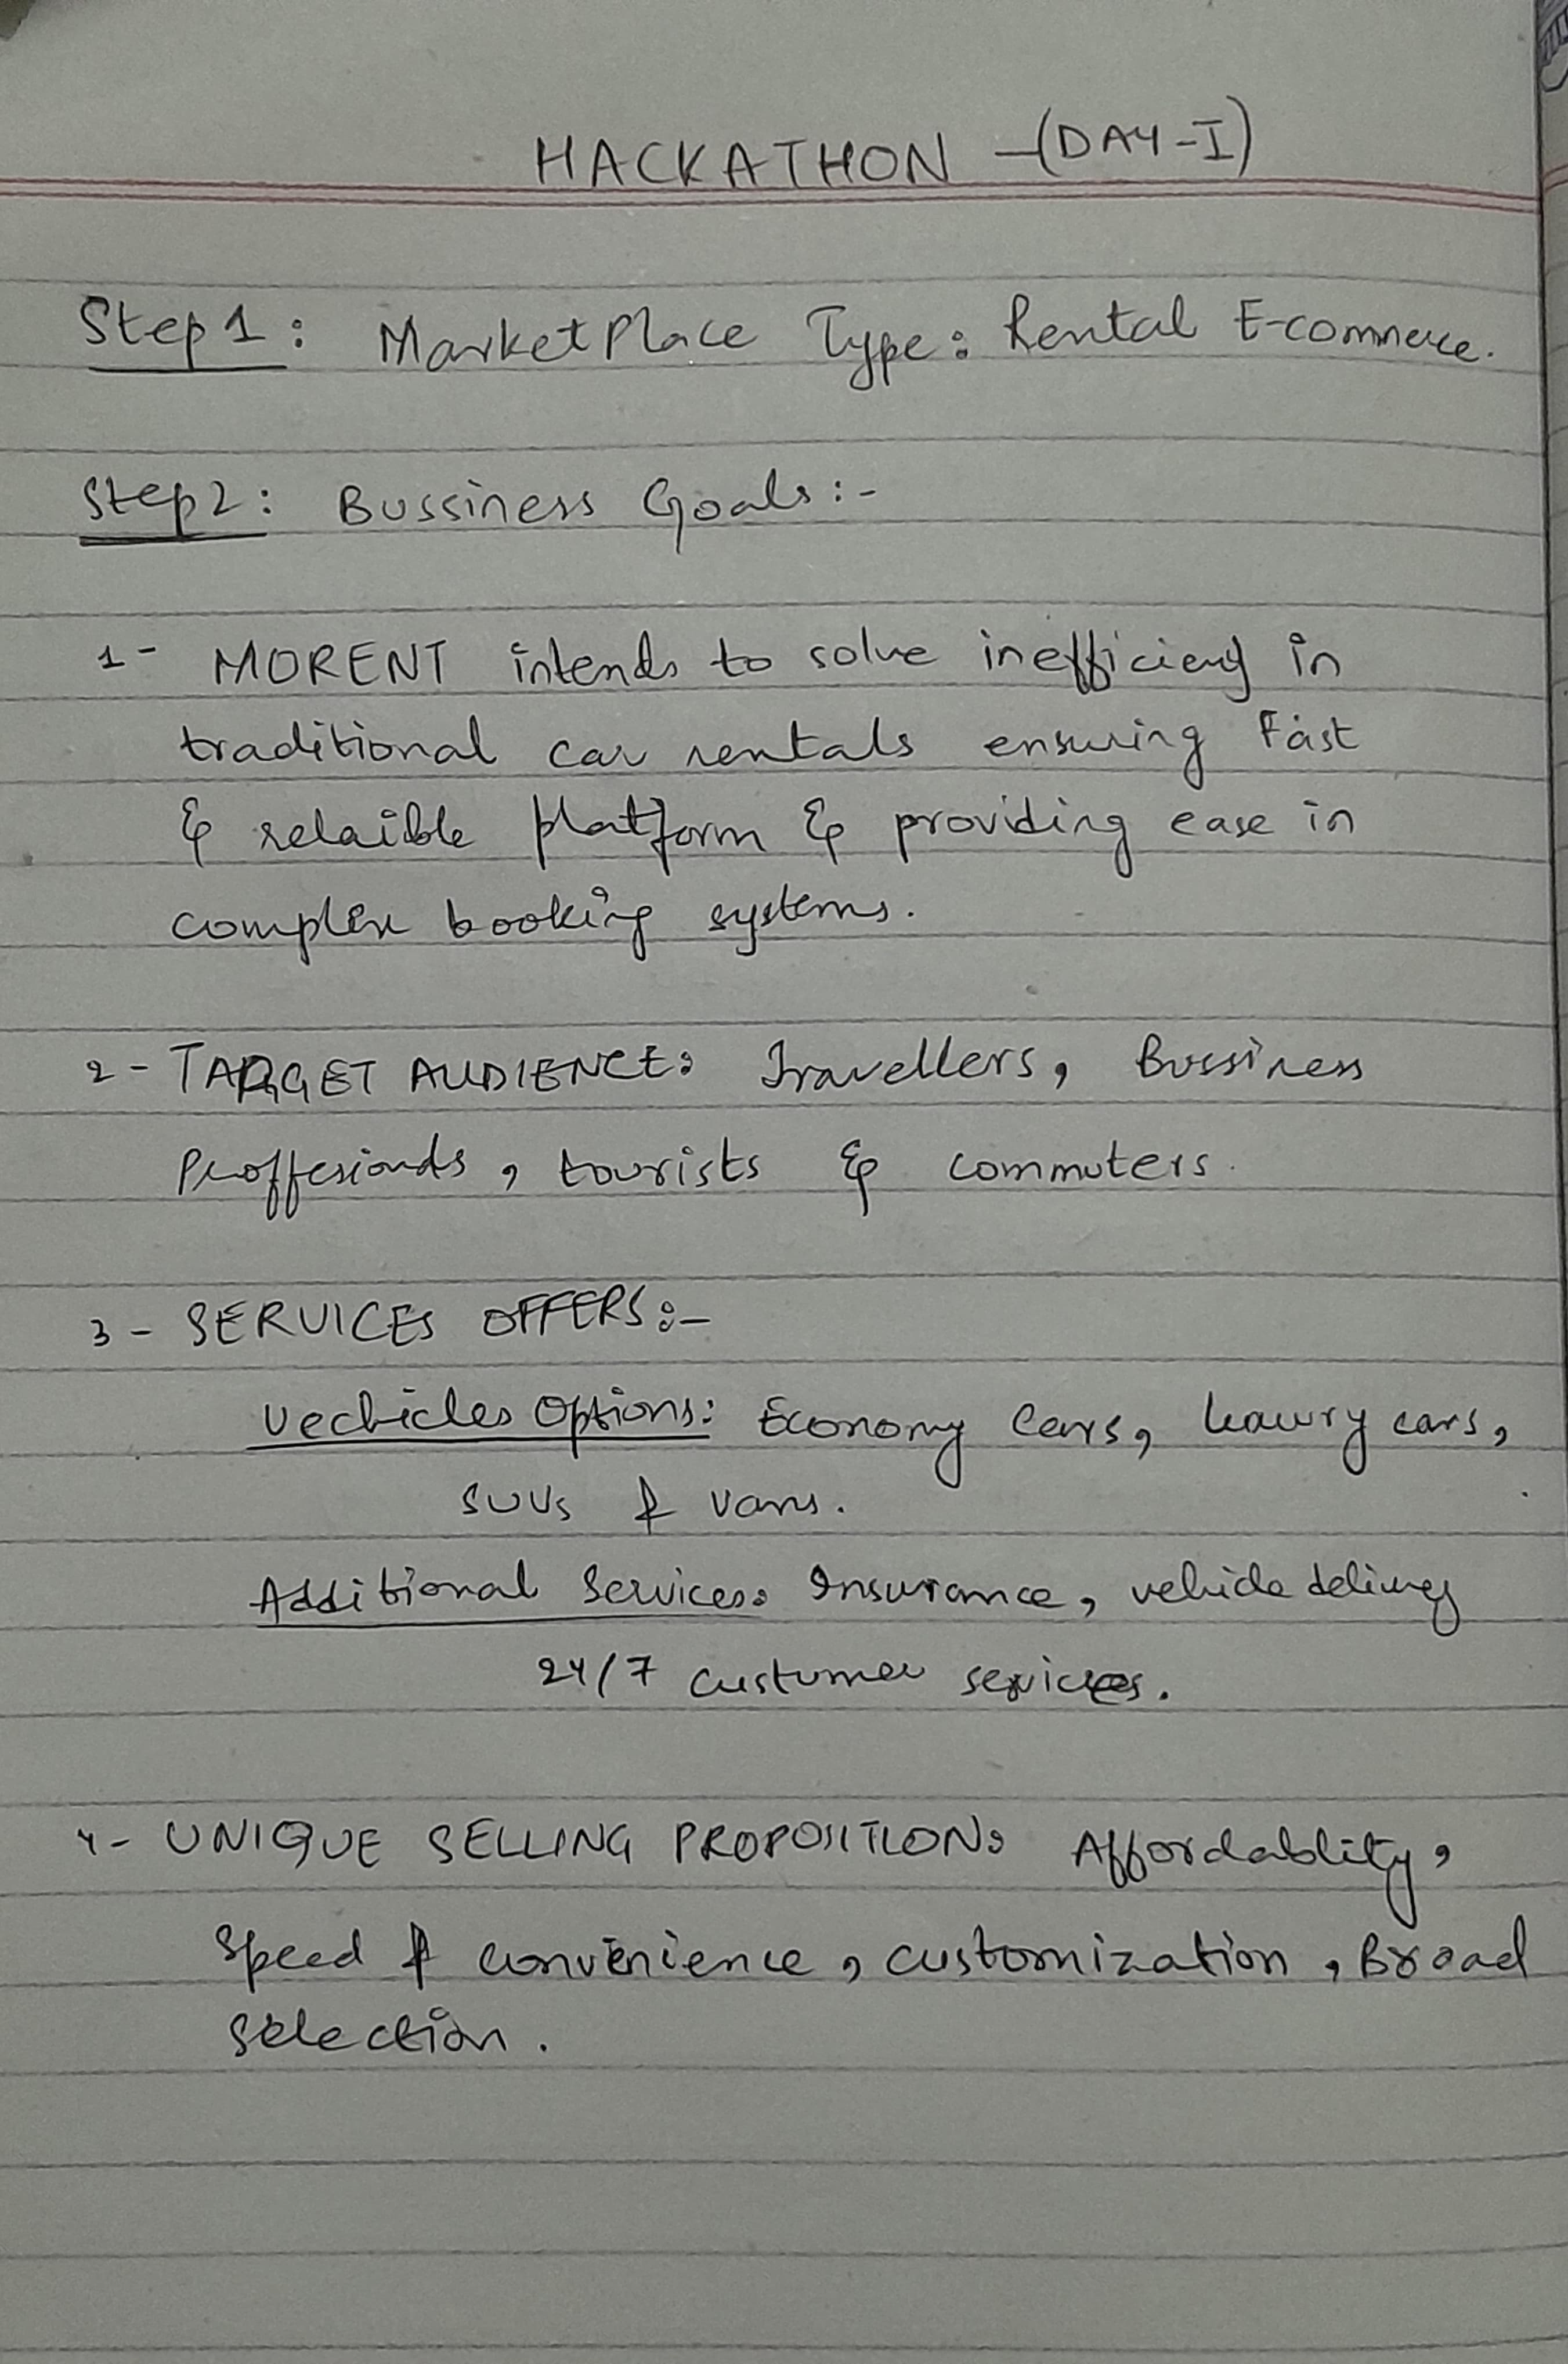 HACKATHON - (DAY-I)
Step 1: MarketPlace Type: Rental E-commerce.
Step 2: Bussiness Goals:-
1- MORENT intends to solve inefficiency in
traditional car rentals ensuring Fast
& relaible platform & providing ease in
complex booking systems.
2- TARGET AUDIENCE: Travellers, Bussiness
Proffesionals, tourists & commuters.
3- SERVICES OFFERS:-
Vechicles Options: Economy Cars, luxury cars,
SUVs & vans.
Additional Services: Insurance, vehicle delivery
24/7 customer services.
4- UNIQUE SELLING PROPOSITION: Affordablity,
Speed & convenience, customization, Broad
selection.